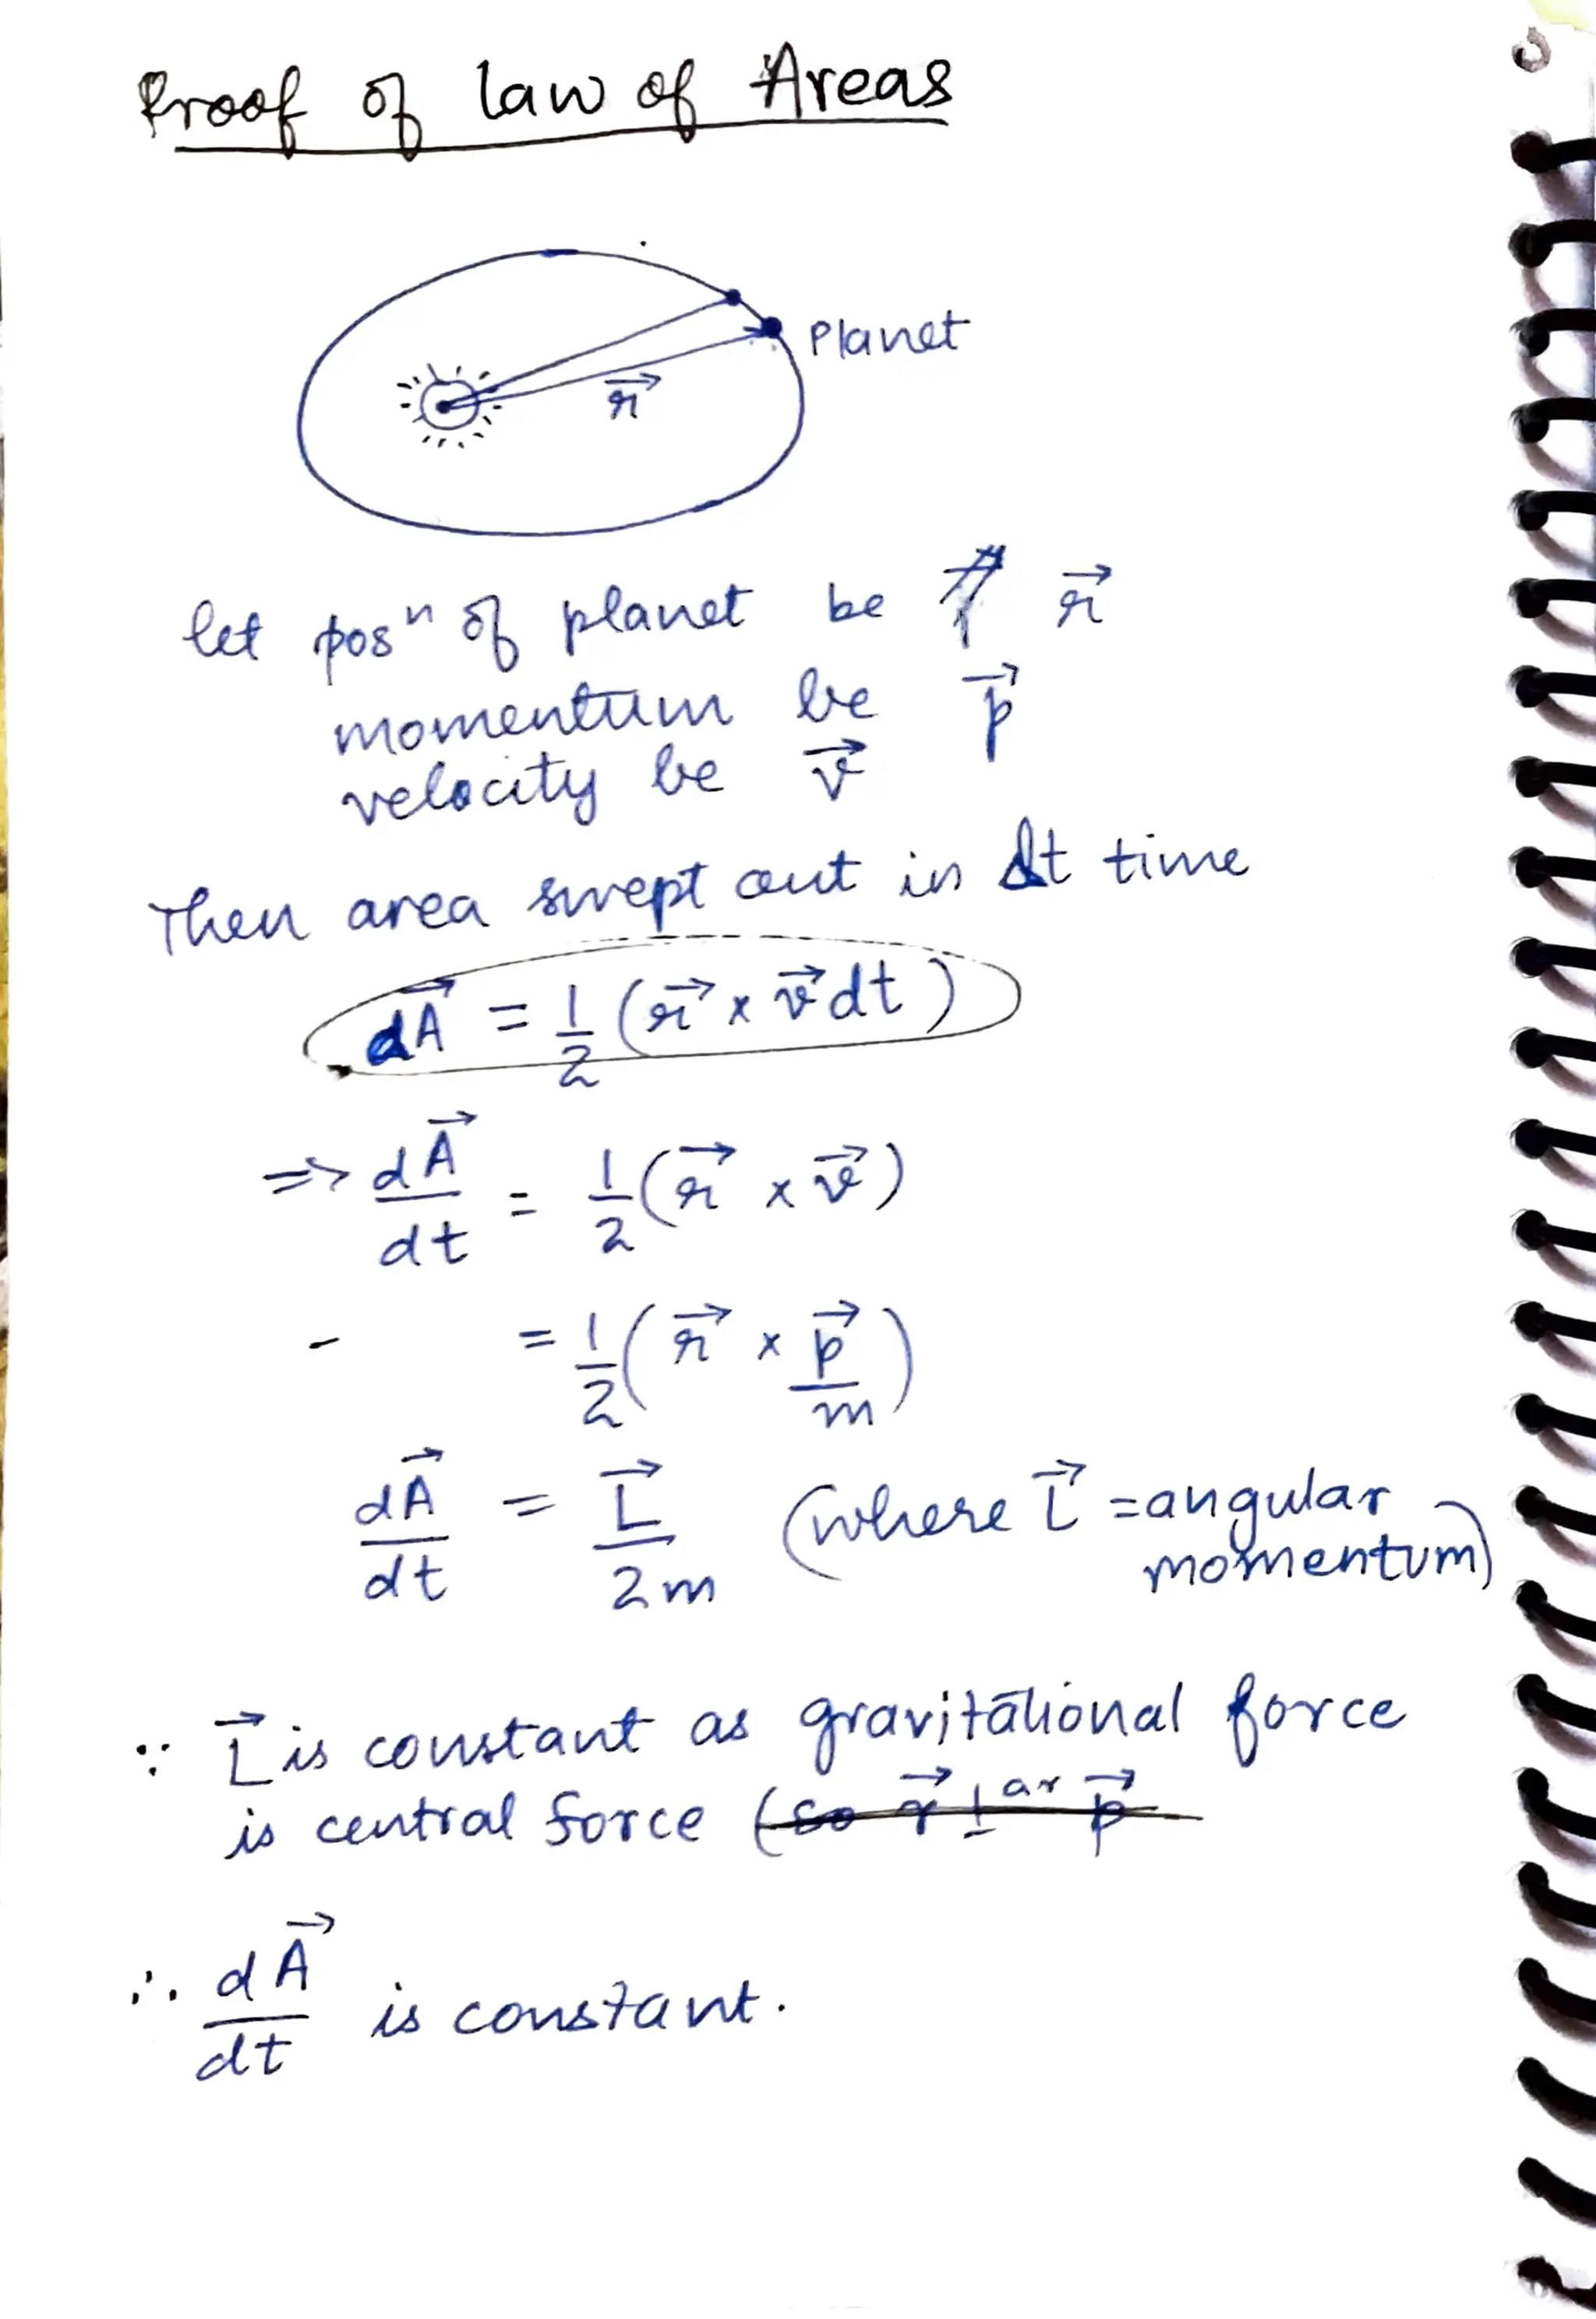 Proof of law of Areas
Planet
r⃗
let posⁿ of planet be r⃗
momentum be p⃗
velocity be v⃗
Then area swept out in dt time
dA⃗ = 1/2 (r⃗ × v⃗ dt)
=> dA⃗/dt = 1/2 (r⃗ × v⃗)
- = 1/2 (r⃗ × p⃗/m)
dA⃗/dt = L⃗/2m (where L⃗ = angular
momentum)
∵ L⃗ is constant as gravitational force
is central force (so r⃗ ⊥ar p⃗
∴ dA⃗/dt is constant.